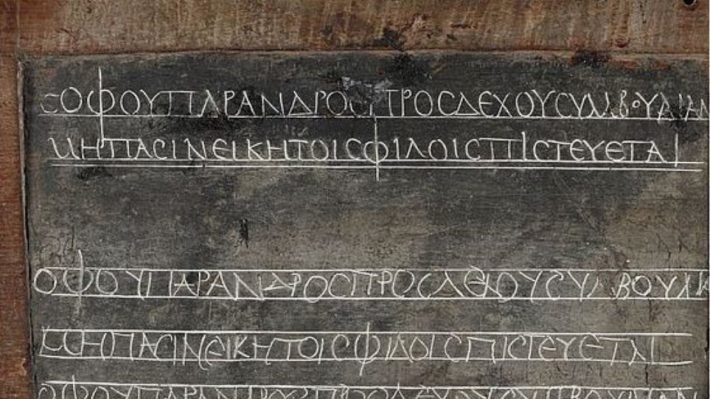 CΟΦΟΥΠΑΡΑΝΔΡΟCΠΡΟCΔΕΧΟΥCΥΜΒΟΥΛΙΑΝ
ΜΗΠΑCΙΝΕΙΚΗΤΟΙCΦΙΛΟΙCΠΙCΤΕΥΕΤΑΙ
ΟΦΟΥΠΑΡΑΝΔΡΟCΠΡΟCΔΕΧΟΥCΥΝΒΟΥΛΙΑ
ΜΗΠΑCΙΝΕΙΚΗΤΟΙCΦΙΛΟΙCΠΙCΤΕΥΕΤΑΙ